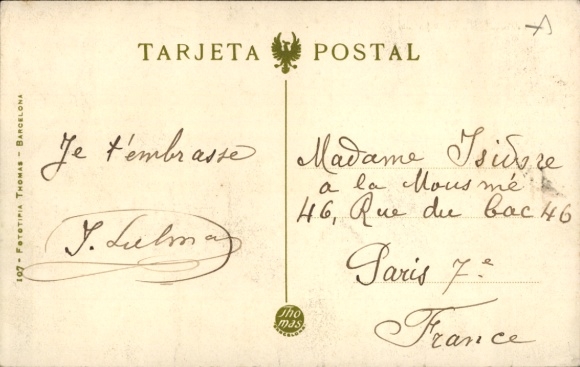 TARJETA POSTAL
107 - FOTOTIPIA THOMAS - BARCELONA
Je t'embrasse
Madame Isidore
a la Mousmé
46, Rue du bac 46
Paris 7e
France
Thomas
BARCELONA